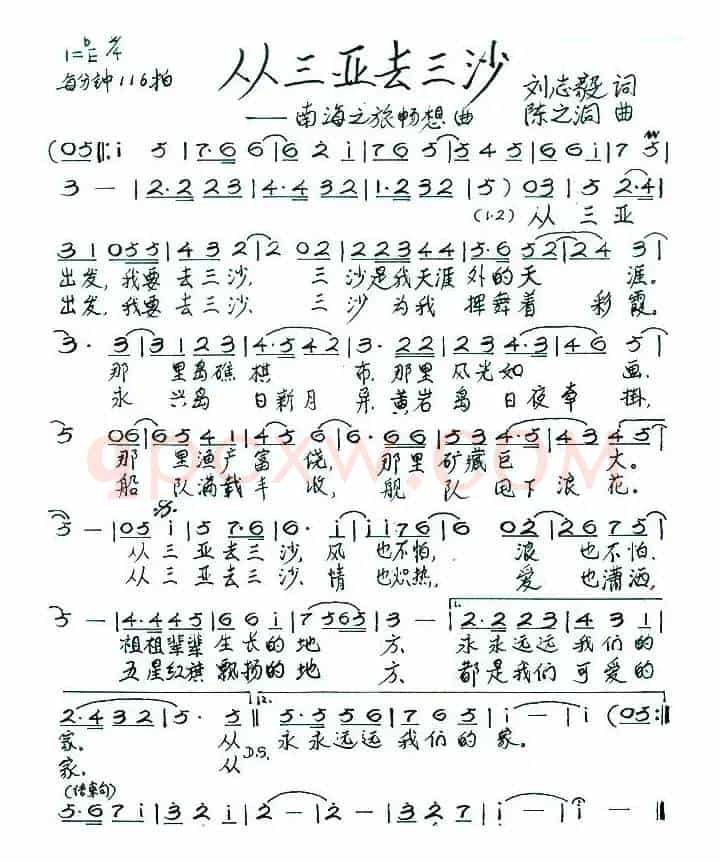 1=bE 2/4
每分钟116拍
从三亚去三沙
——南海之旅畅想曲
刘志毅 词
陈之涧 曲
(05|:i 5|7·6 66|6 2 i|766 5|5 4 5|6 6 i|7 5|
3 —|2·2 23|4·4 32|1·2 32|5)03|5 2·4|
(1.2) 从 三 亚
3 1 055|4 3 2|2 02|22344|5·6 52|24 3|
出发,我要去三沙, 三沙是我天涯外的天 涯。
出发,我要去三沙、 三沙 为我 挥舞着 彩霞。
3· 3|31 23|4·5 42|3· 22|23 4·3|4 6 5|
那 里岛礁棋 布,那里 风光如 画.
永 兴岛 日新月 异,黄岩岛 日夜牵 掛,
5 06|65 41|4 5 6|6· 66|53 4·5|4345|
那 里渔产富饶, 那里矿藏巨 大。
船 队满载丰 收, 舰 队 甩下 浪 花。
5 —|05 i|5 7·6|6· i|ii 76|6 02|26 75|
从三亚去三沙,风 也不怕, 浪 也不怕.
从三亚去三沙、情 也炽热, 爱 也潇洒,
5 —|4·4 45|6 6 i|7 565|3 —|2·2 23|4 3 1|
祖祖辈辈 生长的 地 方、 永永远远 我们的
五星红旗 飘扬的 地 方、 都是我们 可爱的
2·4 32|5· 5‖5·5 56|7 6 5|i —|i —|(05:‖
家。 从 D.S. 永永远远 我们的 家。
家。 从
(结束句)
5·6 7i|3 2 i|2 —|2 —|i —|i —|i —‖
qpcxw.COM